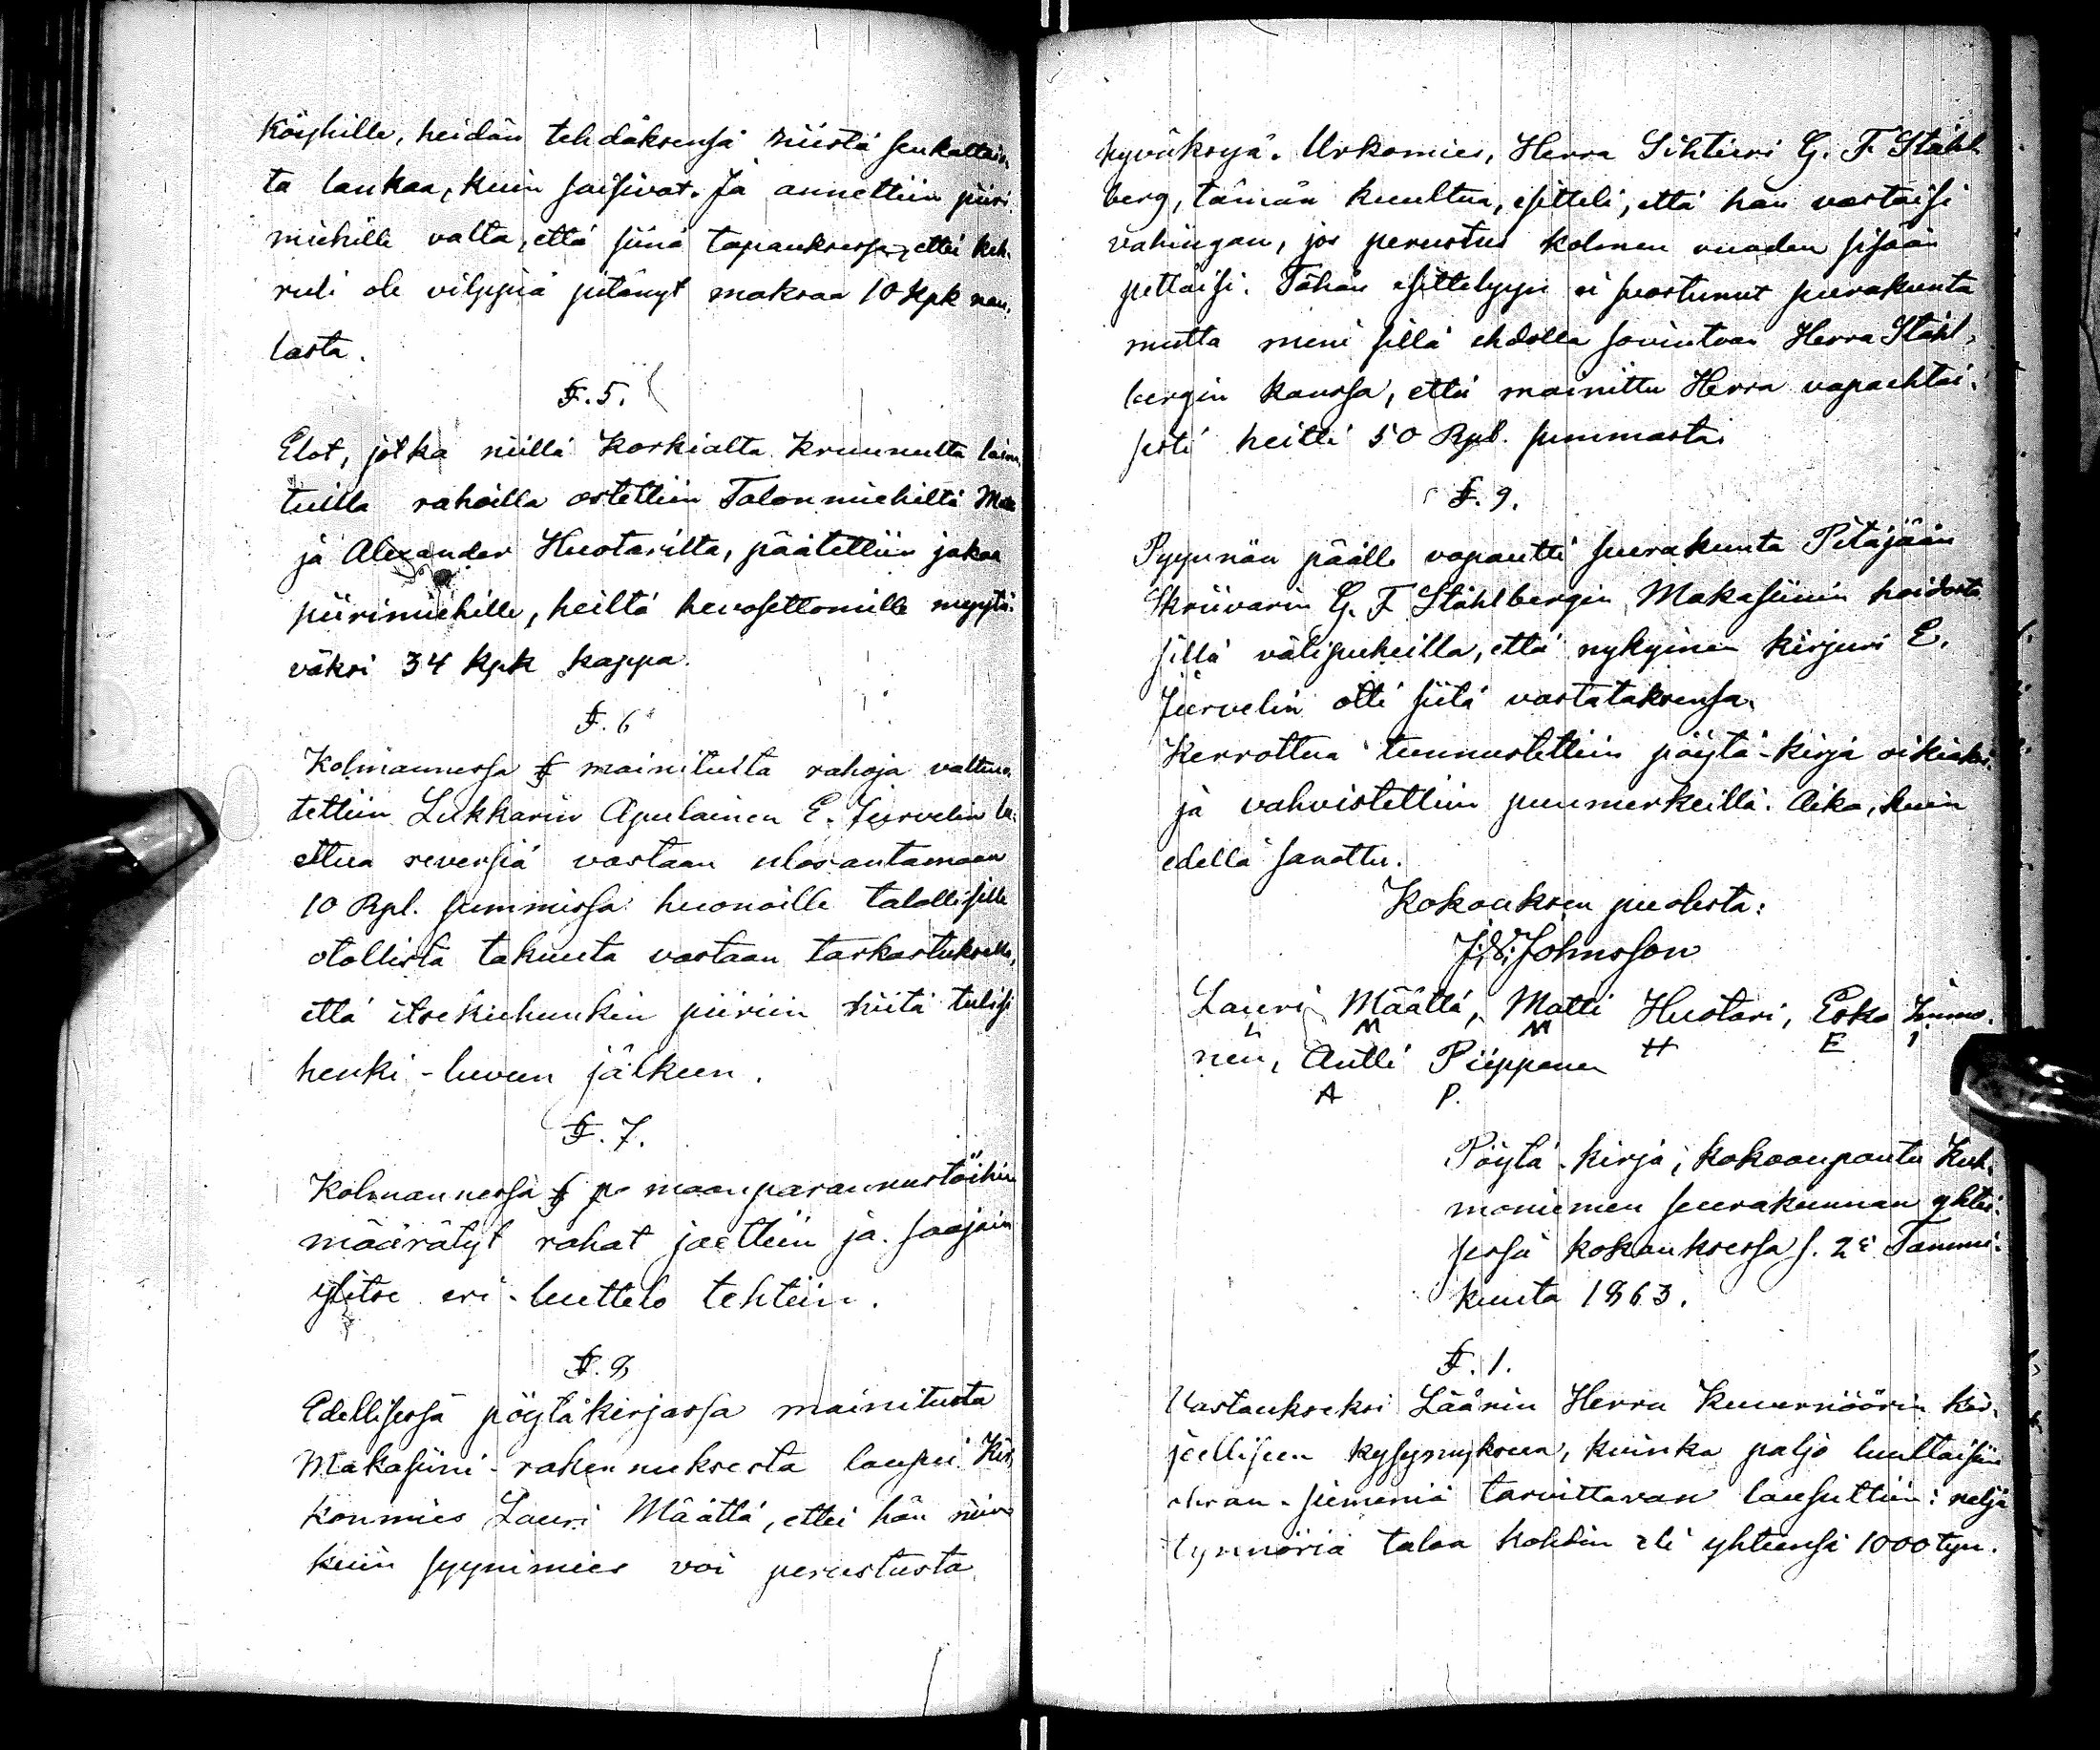 Köyhille, heidän tehdäksensä niistä senkaltais,
ta lankaa, kuin saisivat. Ja annettiin piiri,
miehille valta, että siinä tapauksessa, ettei keh,
ruli ole vilppiä pitänyt maksaa 10 Kpk nau,
lasta.
§. 5.
Elot, jotka niillä Korkialta Kruunulta laina
tuilla rahoilla ostettiin Talonmiehiltä
ja Alexander Huotarilta, päätettiin jakaa
piirimiehille, heiltä hevosettomille myytä,
väksi 34 kpk kappa.
§. 6
Kolmannessa § mainitulta rahoja valtuu,
tettiin Lukkarin Apulainen E. Jurvelin
ettua reversiä vastaan ulosantamaan
10 Rpl. summissa huonoille talollisille
otollista takuuta vastaan tarkastuksella,
että itsekuhunkin piiriin niitä tulisi
henki-luvun jälkeen.
§. 7.
Kolmannessa § maanparannustöihin
määrätyt rahat jaettiin ja saajain
ylitse eri-luettelo tehtiin.
§. 8
Edellisessä pöytäkirjassa mainitusta
Makasiini-rakennuksesta lausui Kir,
konmies Lauri Määttä, ettei hän niin
kuin syynimies voi perustusta
hyväksyä. Urkomies, Herra Sihteeri G. F. Ståhl,
berg, tämän kuultua, esitteli, että hän vastaisi
vahingan, jos perustus kolmen vuoden sisään
pettäisi. Tähän esittelyyn ei suostunut seurakunta
mutta meni sillä ehdolla sovintoon Herra Ståhl,
bergin kanssa, että mainittu Herra vapaehtoi,
sesti heitti 50 Rpl. summasta.
§. 9.
Pyynnän päälle vapautti seurakunta Pitäjään
Skriivarin G. F. Ståhlbergin Makasiinin hoidosta
sillä välipuheilla, että nykyinen kirjuri E.
Jurvelin otti siitä vastataksensa.
Kerrottua tunnustettiin pöytä-kirja oikiaksi
ja vahvistettiin puumerkeillä. Aika, kuin
edellä sanottu.
Kokouksen puolesta:
Johnsson
Lauri Määttä, Matti Huotari, Esko Immo,
L M M H E I
nen, Antti Piipponen
A P.
Pöytä-kirja, kokoonpantu Kuh,
moniemen seurakunnan yhtei,
sessä kokouksessa s. 2 Tammi,
kuuta 1863.
§. 1.
Vastaukseksi Läänin Herra Kuvernöörin kir,
jeelliseen kysymykseen, kuinka paljo luultaisiin
ohran-siemeniä tarvittavan lausuttiin: neljä
tynnöriä taloa kohdin eli yhteensä 1000 tyn.